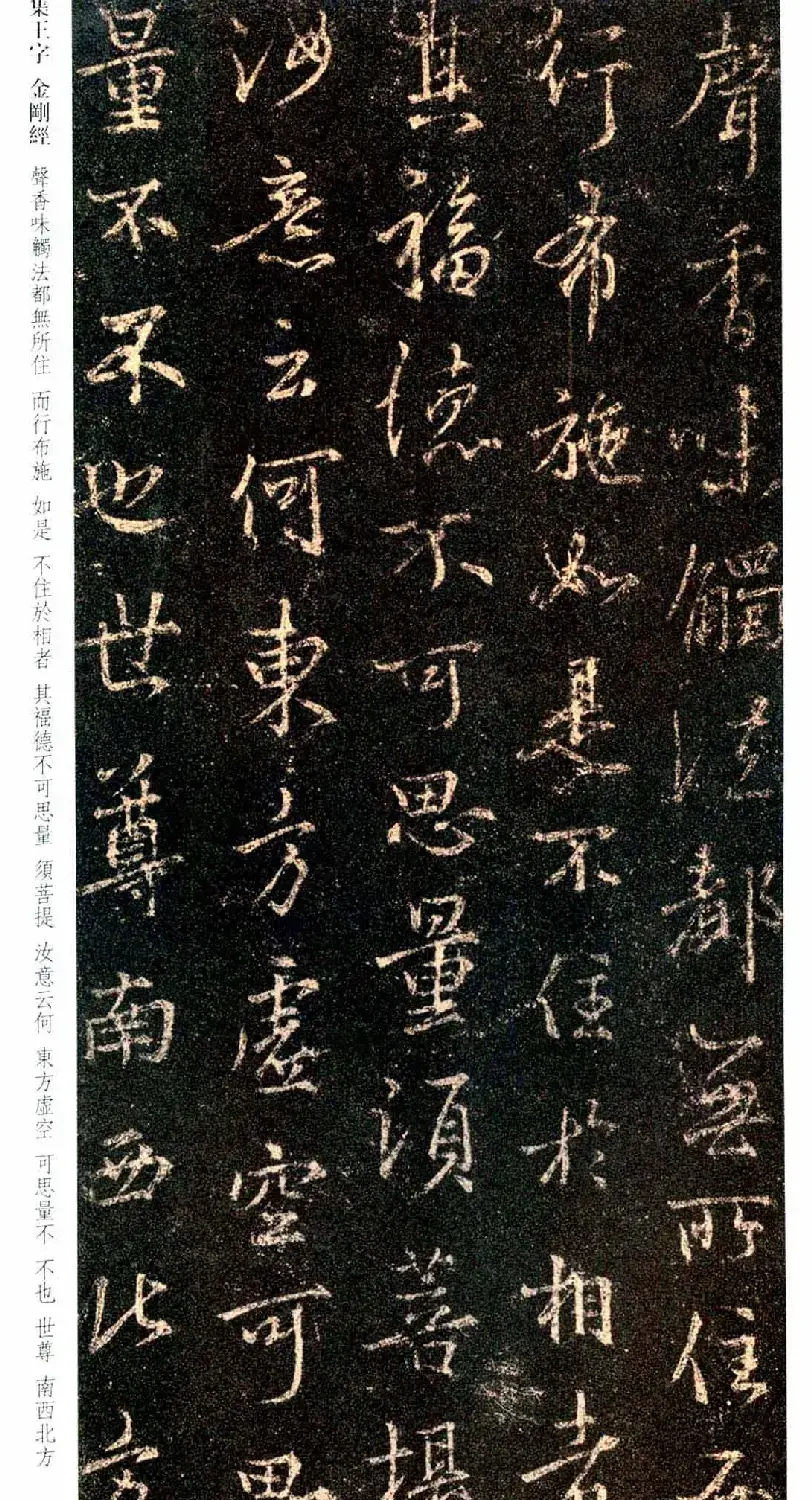 聲香味觸法都無所住而
行布施如是不住於相者
其福德不可思量須菩提
汝意云何東方虛空可思
量不不也世尊南西北方
集王字 金剛經 聲香味觸法都無所住 而行布施 如是 不住於相者 其福德不可思量 須菩提 汝意云何 東方虛空 可思量不 不也 世尊 南西北方